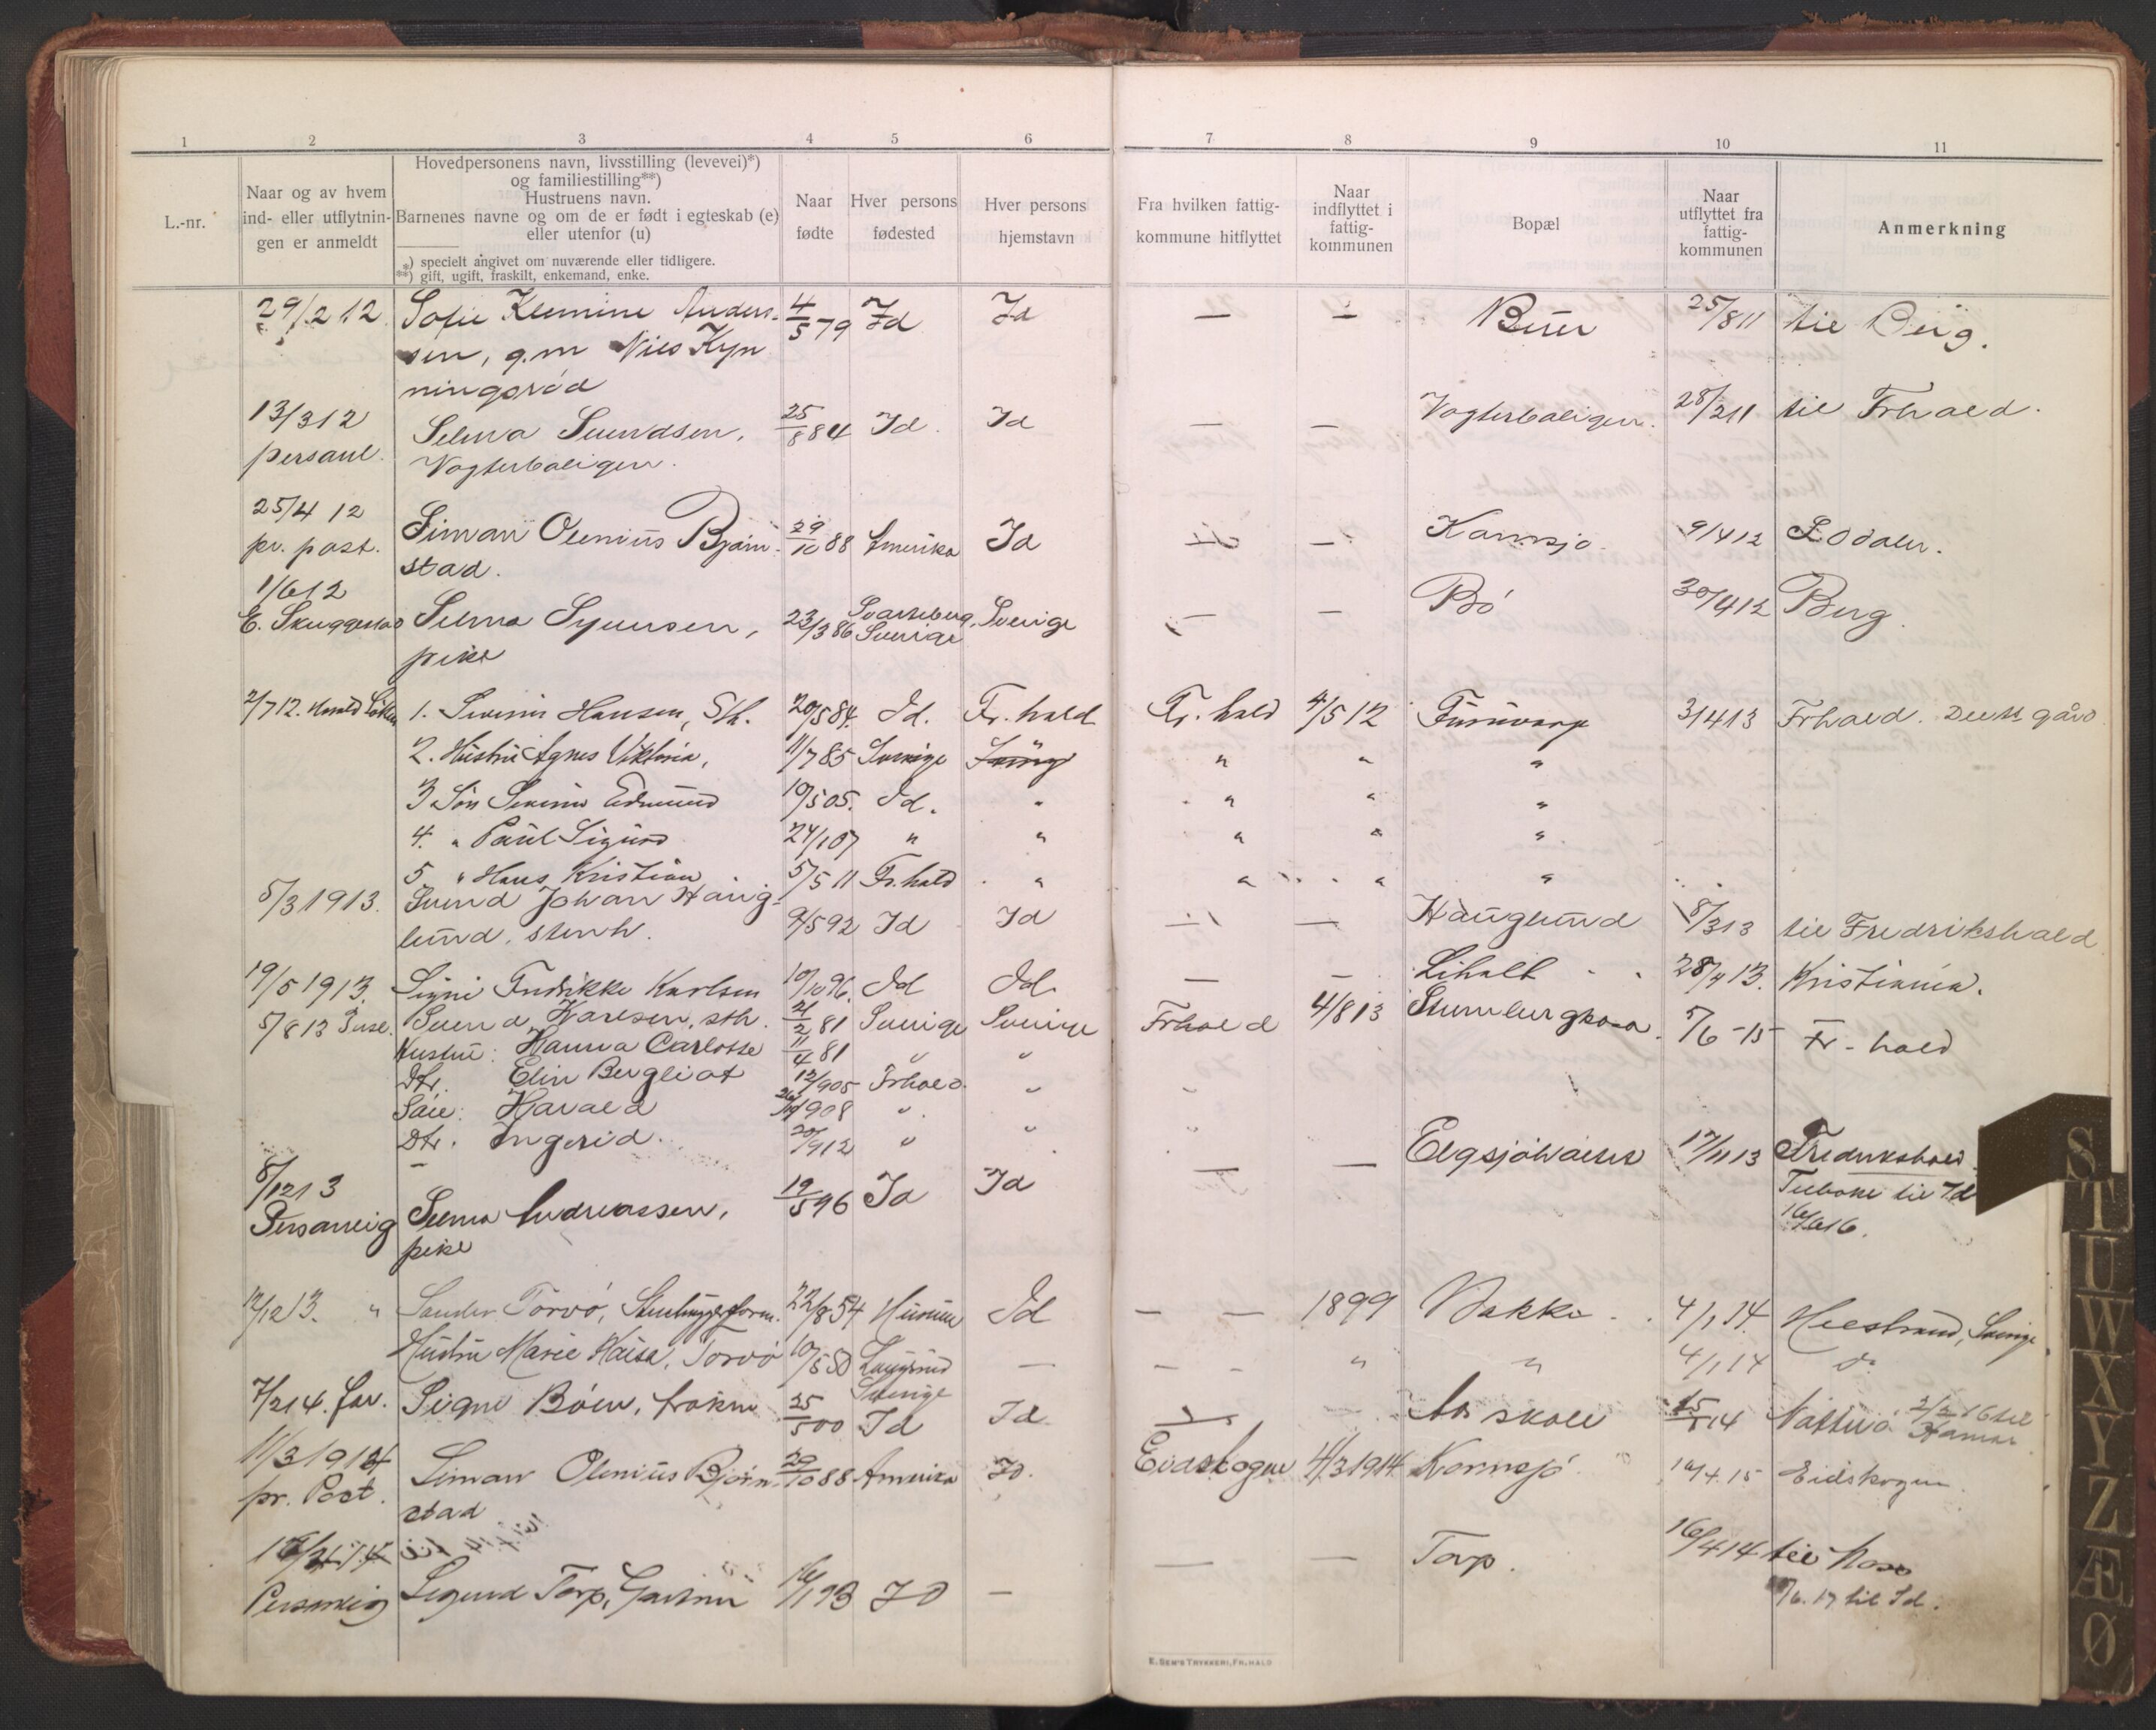 1 2 3 4 5 6 7 8 9 10 11
L.-nr.
Naar og av hvem
ind- eller utflytnin-
gen er anmeldt
Hovedpersonens navn, livsstilling (levevei)*)
og familiestilling**)
Hustruens navn.
Barnenes navne og om de er født i egteskab (e)
eller utenfor (u)
*) specielt angivet om nuværende eller tidligere.
**) gift, ugift, fraskilt, enkemand, enke.
Naar
fødte
Hver persons
fødested
Hver persons
hjemstavn
Fra hvilken fattig-
kommune hitflyttet
Naar
indflyttet i
fattig-
kommunen
Bopæl
Naar
utflyttet fra
fattig-
kommunen
Anmerkning
29/2 12 Sofie Klemine Anders- 4/5 79 Id Id — — Buer 25/8 11 til Berg.
sen, g.m Niels Kyn
ningsrød
13/3 12 Selma Svendsen, 25/8 84 Id Id — — Vogterboligen 28/2 11 til Frhald.
personl. Vogterboligen.
25/4 12 Siman Olenius Bjørn- 29/10 88 Amerika Id — — Kornsjø 9/4 12
pr. post. stad.
1/6 12
E. Skuggestad Selma Syversen, 23/3 86 Svarteborg, Sverige Sverige — — Bø 30/4 12 Berg.
pike
2/7 12. 1. Severin Hansen, Sth. 20/5 84. Id. Fr.hald Fr.hald 4/5 12 Furuvarp 3/4 13 Frhald.
2. Hustru Agnes Viktoria, 11/7 85 Sverige " " "
3 Søn Severin Edmund 19/5 05. Id. " " " "
4. " Paul Sigurd 24/1 07 " " " " "
5 " Hans Kristian 5/5 11 Fr.hald " " " "
5/3 1913. Svend Johan Haug- 9/5 92 Id Id — — Hauglund 8/3 13 til Fredrikshald
lund, stenh.
19/5 1913. Signe Fredrikke Karlsen 10/10 96. Id Id. — — Liholt 28/4 13. Kristiania.
5/8 13 Svend Karlsen, sth. 21/2 81 Sverige Sverige Frhald 4/8 13 5/6-15 Fr-hald
Hustru: Hanna Carlotte 11/4 81 " "
Dtr. Elin Bergliot 12/905 Frhald. " "
Søn: Harald 908 " "
Dtr. Ingerid. 20/912 "
8/12 13 Selma Andreassen, 19/5 96 Id Id — — Elgsjøhaugen 17/11 13 Fredrikshald
Personlig pike Tilbake til Id
16/6 16.
12/12 13. " Sander Torvø, Stenhuggerform. 22/8 54 Hurum Id — — 1899 Bakke 4/1 14. Heestrand, Sverige
Hustru Marie Kaisa, Torvø 10/5 50 Sverige — — - " " 4/1 14 do
7/2 14. Signe Bøen, frøken 25/5 00 Id Id — skole 15/1 14 2/2 16 til Hamar
11/3 1914 Siman Olenius Bjørn- 29/10 88 Amerika Id. Eidskogen 11/3 1914 Kornsjø 10/4.15 Eidskogen.
pr. Post. stad
16/4 14 Sigurd Torp, Gartner 16/1 93 Id — — — Torp. 16/4 14 til Moss
Personlig /6.17 til Id.
E. SEM'S TRYKKERI, FR.HALD
S
T
U
W
X
Y
Z
Æ
Ø